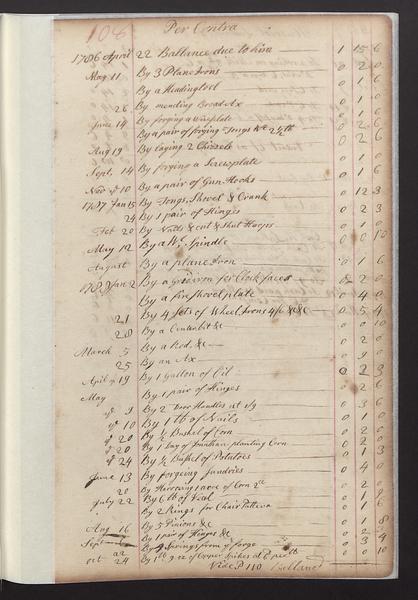 108
Per Contra
1786 April 22 Ballance due to him 1 15 6
May 11 By 3 Plane Irons 0 2 0
By a Heading tool 0 1 6
26 By mending Broad Ax
June 14 By forging a
By a pair of forging Tongs
Aug 19 By laying 2 Chizzels 0 2 6
Sept. 14 By forging a Screwplate 0 1 6
Nov 10 By a pair of Gun Hooks 0 1 6
1787 Jan 15 By Tongs, Shovel & Crank 0 12 3
24 By 1 pair of Hinges 0 2 3
Oct 20 By Nails & cut & Shut Hoops 0 1 0
May 12 By a W. Spindle 0 0 10
August By a plane Iron 0 1 6
Jan 2 By a gridiron for Clock faces 2 0
By a fire shovel plate 0 4 0
21 By 4 Sets of Wheel Irons 4/6 &c &c 0 5 4
28 By a Centerbit &c 0 0 10
March 5 By a Rod, &c 0 2 0
25 By an Ax 0 9 0
April 19 By 1 Gallon of Oil 0 2 3
May By 1 pair of Hinges 0 2 6
9 By 2 Door Handles at 1/9 0 3 6
10 By 1 lb of Nails 0 1 0
20 By ½ Bushel of Corn 0 2 0
20 By 1 Day of Jonathan planting Corn 0 2 0
24 By ½ Bushel of Potatoes 0 1 3
June 13 By forgeing Sundries 0 4 0
20 By Harrowing 1 acre of Corn
July 22 By 6 lb of Veal
By 2 Rings for Chair
Aug 16 By 5 Pinions &c 0 1 8
Sept By 1 pair of Hinges &c
By 9 Springs from forge
Oct 24 Copper Spikes at
Vide P 110 Balland